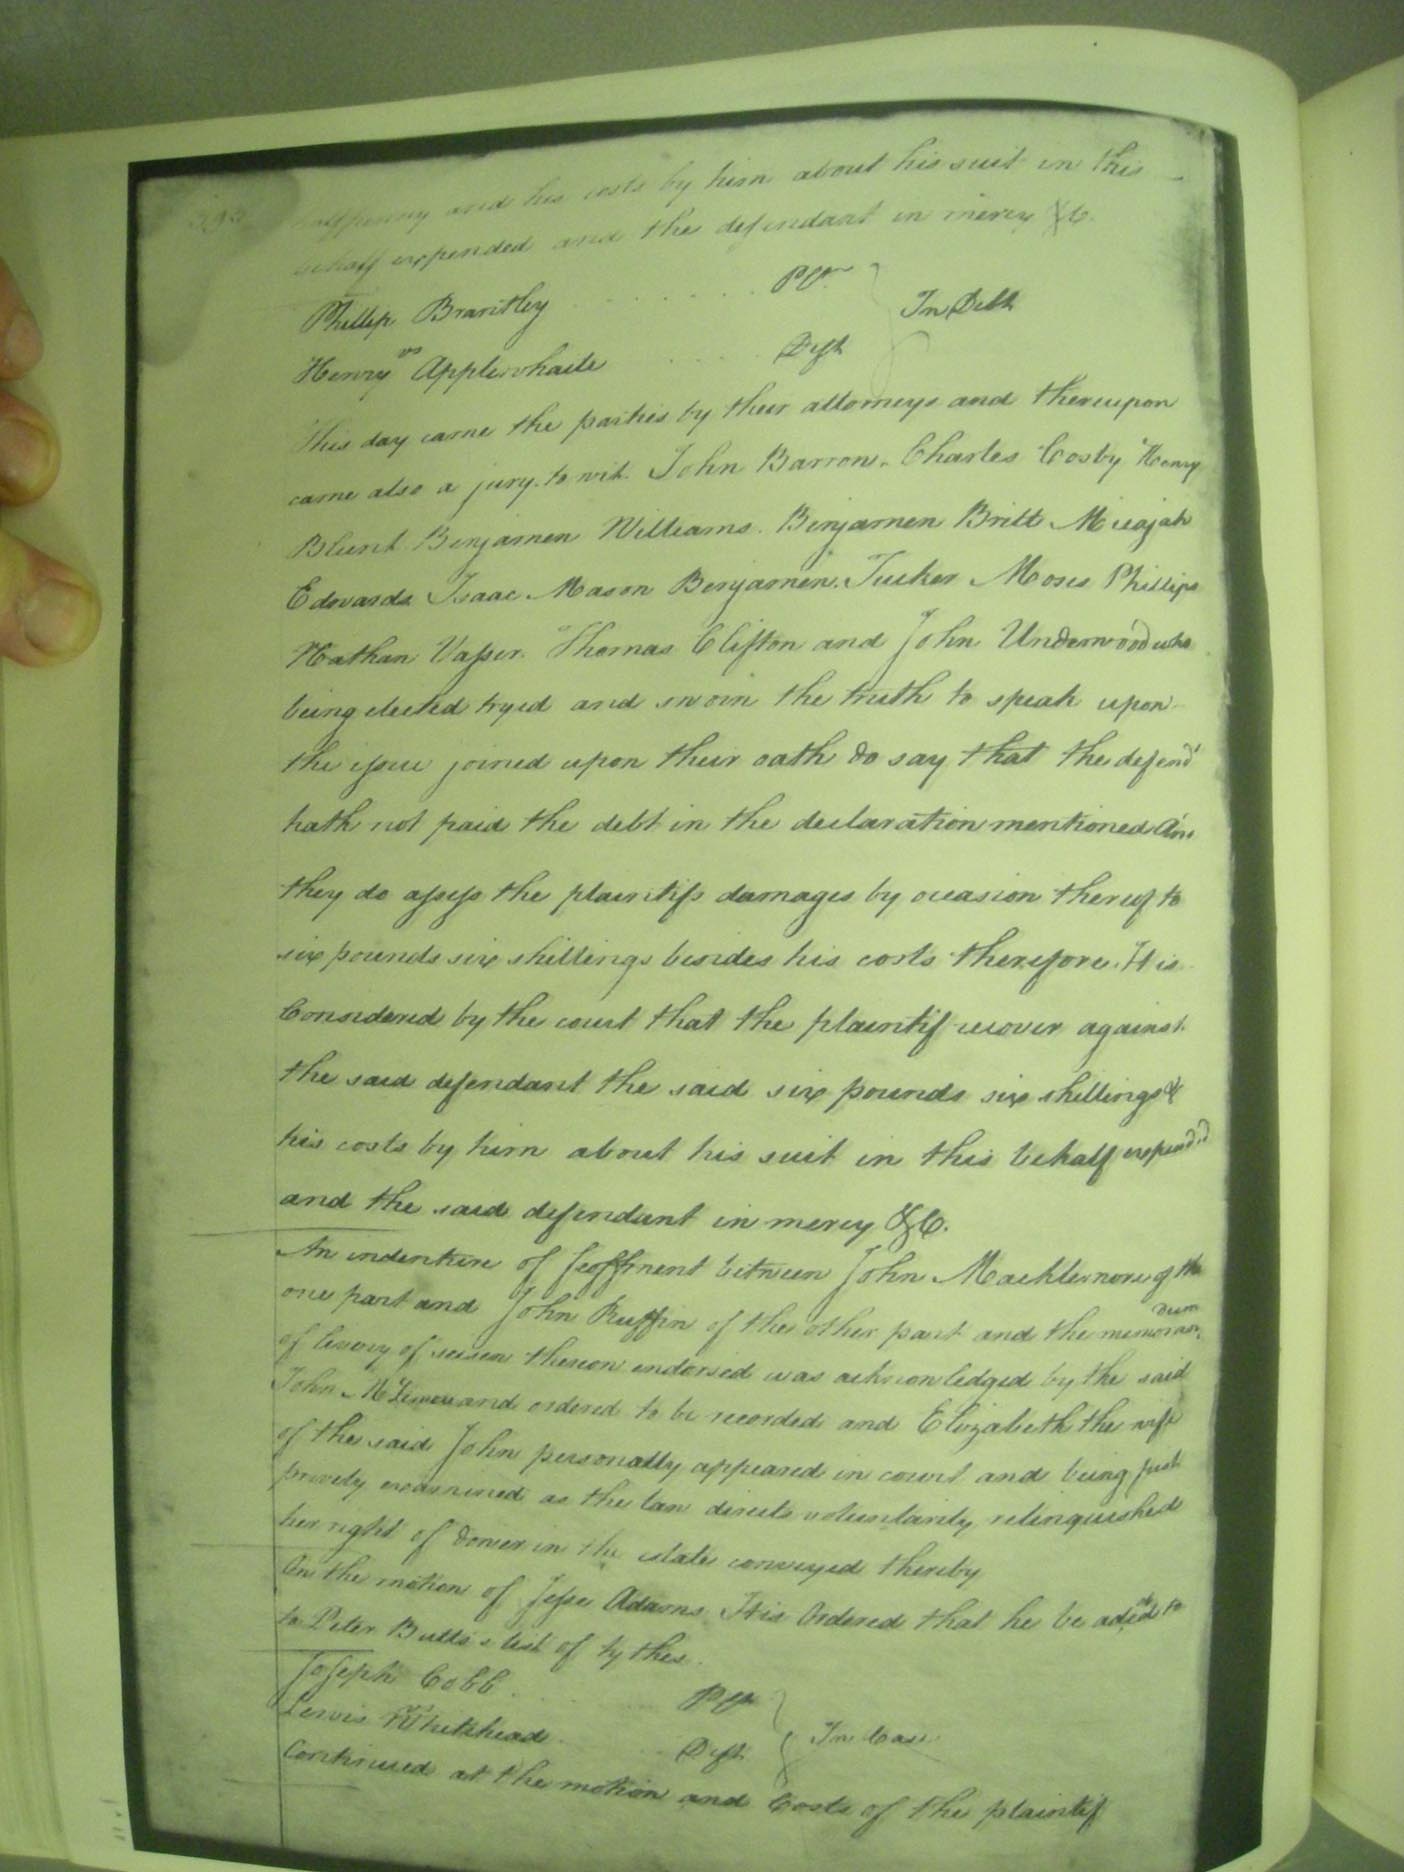 halfpenny and his costs by him about his suit in this
behalf expended and the defendant in mercy &C.
Phillip Brantley Plt
vs
In Debt
Henry Applewhaite Deft
This day came the parties by their attorneys and thereupon
came also a jury. to wit. John Barron. Charles Cosby Henry
Blunt. Benjamen Williams. Benjamen Britt Micajah
Edwards. Isaac Mason Benjamen. Tucker Moses Phillips
Nathan Vasser. Thomas Clifton and John Underwood who
being elected tryed and sworn the truth to speak upon
the issue joined upon their oath do say that the defendt
hath not paid the debt in the declaration mentioned And
they do assess the plaintifs damages by occasion thereof to
six pounds six shillings besides his costs therefore. It is
Considered by the court that the plaintif recover against
the said defendant the said six pounds six shillings &
his costs by him about his suit in this behalf expended
and the said defendant in mercy &C.
An indenture of feoffment between John Macklemore of the
one part and John Ruffin of the other part and the memoran
dum
of livery of seisen thereon endorsed was acknowledged by the said
John McLemore and ordered to be recorded and Elizabeth the wife
of the said John personally appeared in court and being first
prively examined as the law directs voluntarily relinquished
her right of dower in the estate conveyed thereby
On the motion of Jesse Adams It is Ordered that he be added to
to Peter Butts's list of tythes.
Joseph Cobb Plt
vs
In Case
Lewis Whitehead Deft
Continued at the motion and Costs of the plaintif